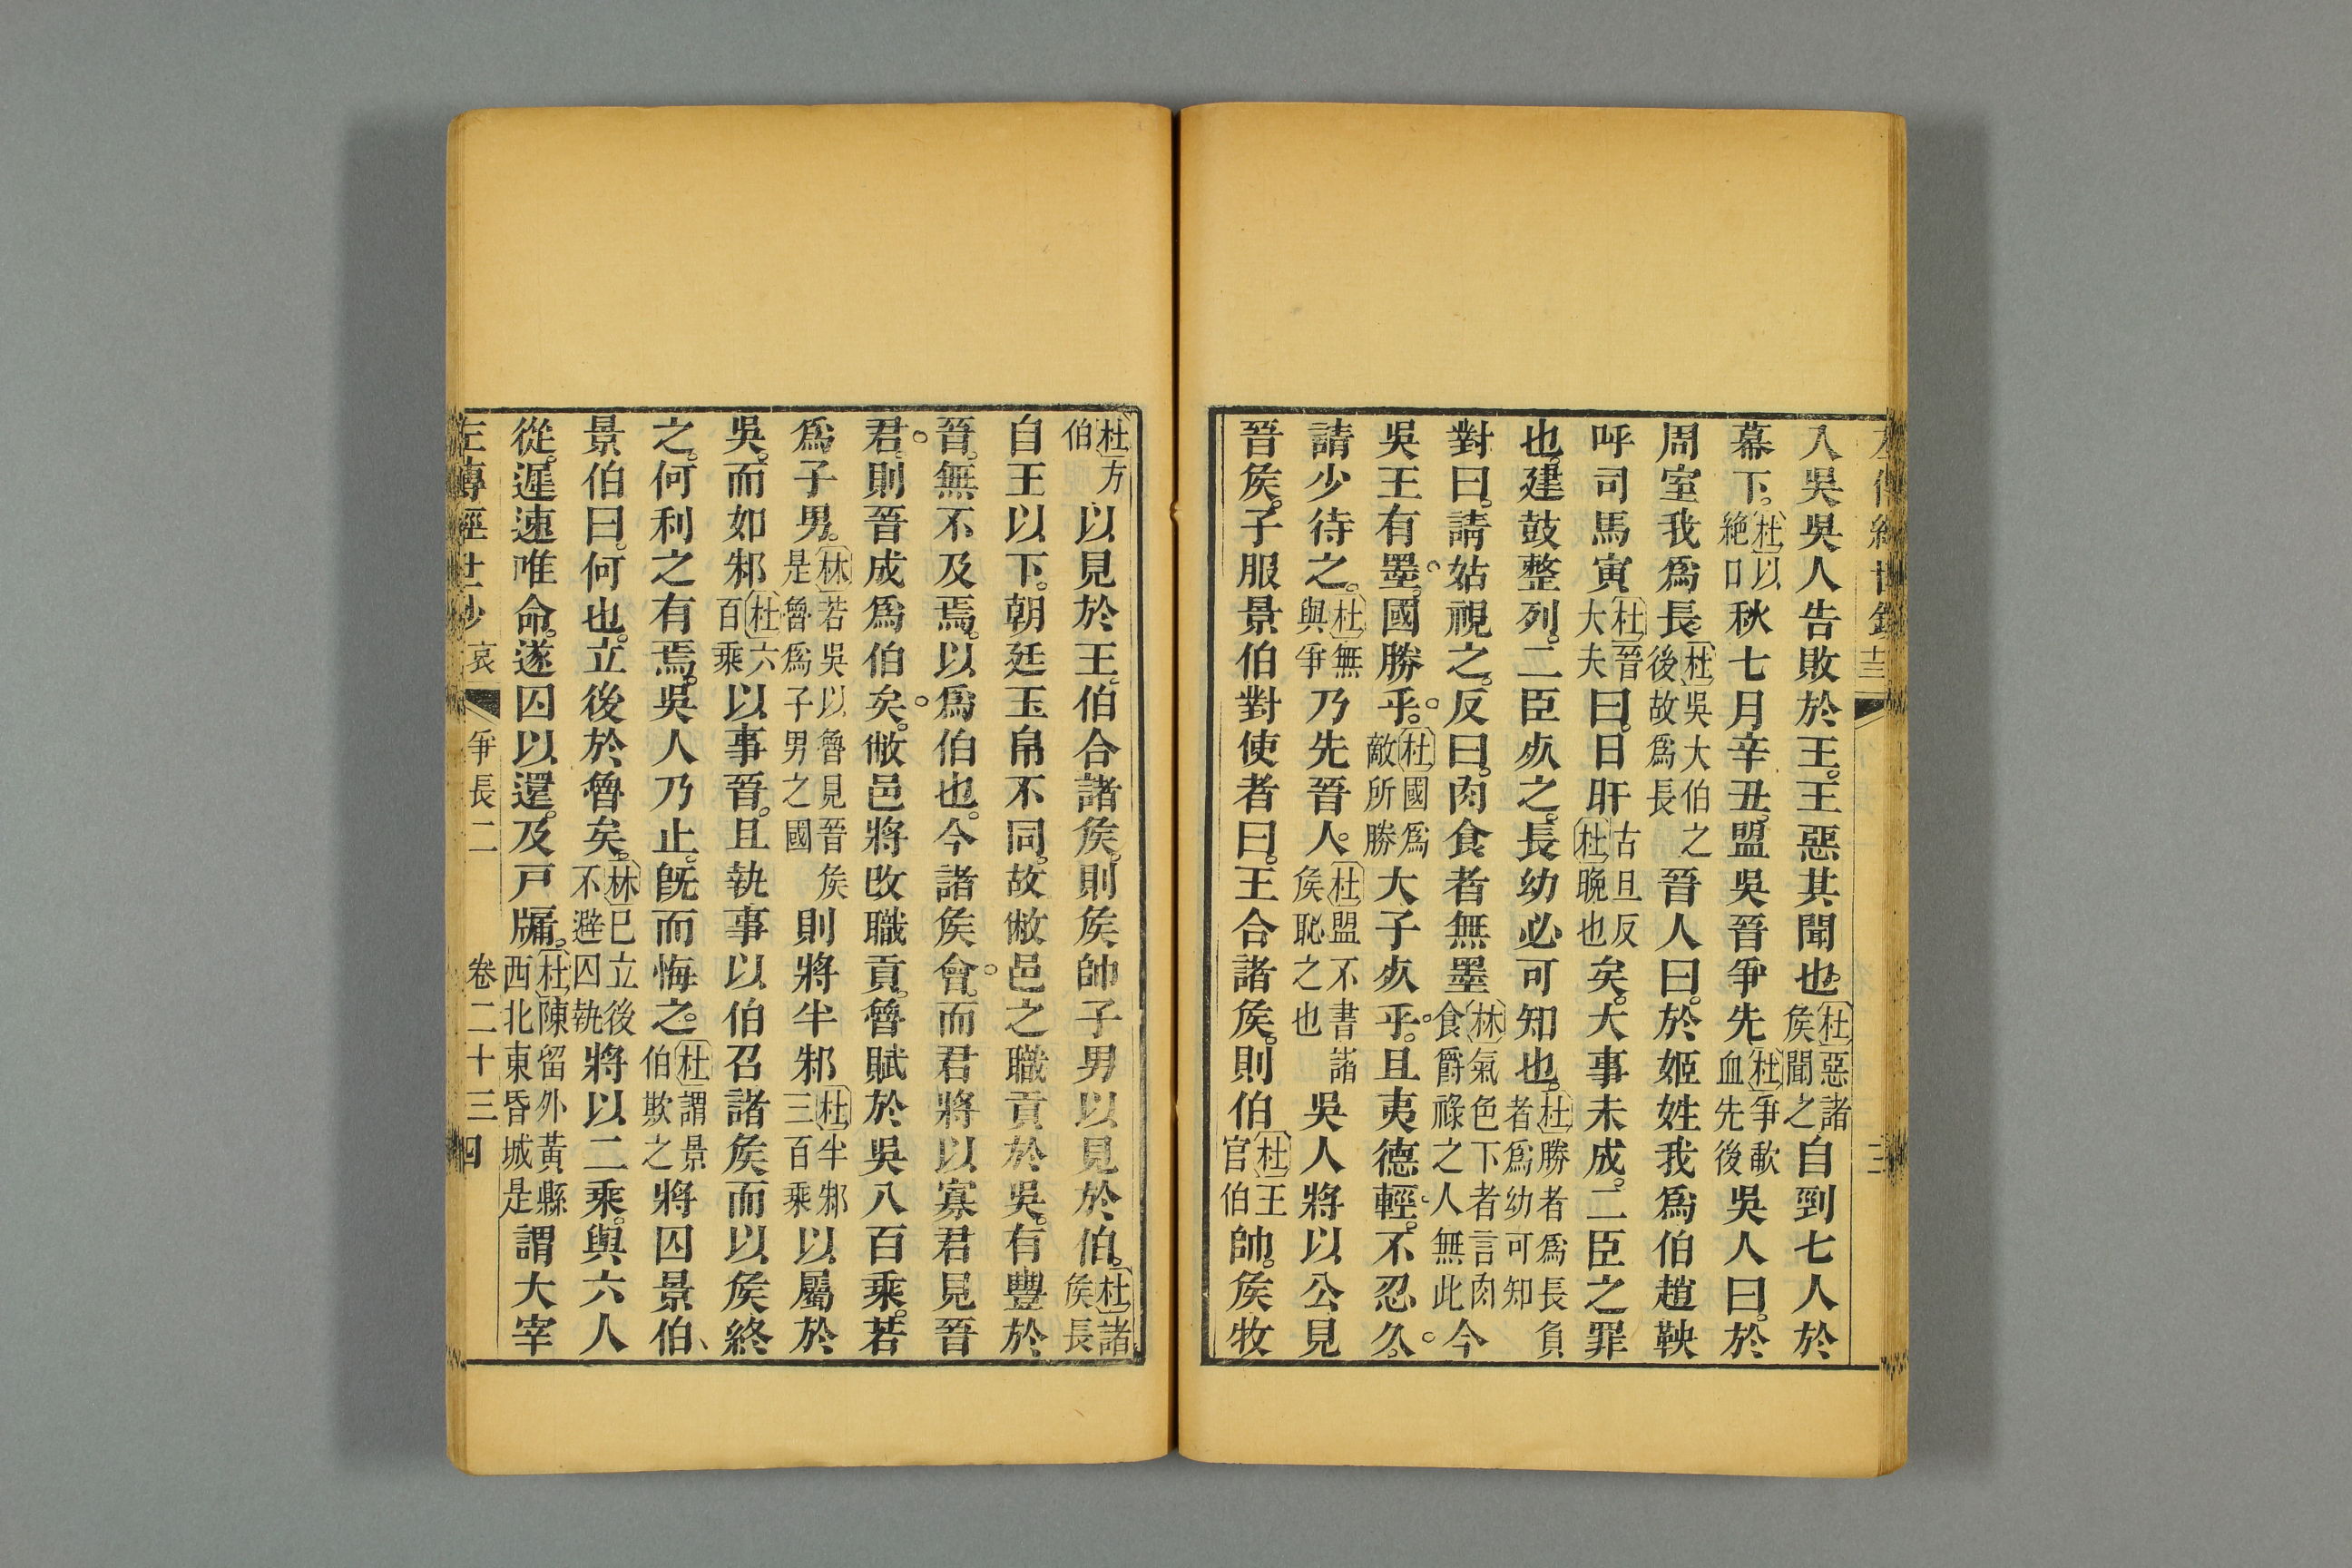 入吳吳人告敗於王。王惡其聞也。杜惡諸侯聞之自剄七人於
幕下。杜以絕口秋七月辛丑。盟吳晉爭先杜爭歃血先後吳人曰。於
周室我爲長。杜吳大伯之後故爲長晉人曰。於姬姓我爲伯趙鞅
呼司馬寅杜晉大夫曰。日旰古旦反杜晚也矣。大事未成。二臣之罪
也。建鼓整列。二臣死之。長幼必可知也。杜勝者爲長負者爲幼可知
對曰。請姑視之。反曰。肉食者無墨林氣色下者言肉食爵祿之人無此今
吳王有墨。國勝乎。杜國爲敵所勝大子死乎。且夷德輕。不忍久。
請少待之。杜無與爭乃先晉人。杜盟不書諸侯恥之也吳人將以公見
晉侯。子服景伯對使者曰。王合諸侯。則伯杜王官伯帥。侯牧
杜方伯以見於王。伯合諸侯。則侯帥子男以見於伯。杜諸侯長
自王以下。朝廷玉帛不同。故敝邑之職貢於吳。有豐於
晉。無不及焉。以爲伯也。今諸侯會。而君將以寡君見晉
君。則晉成爲伯矣。敝邑將改職貢。魯賦於吳八百乘。若
爲子男。林若吳以魯見晉侯是魯爲子男之國則將半邾杜半邾三百乘以屬於
吳。而如邾杜六百乘以事晉。且執事以伯召諸侯而以侯終
之。何利之有焉。吳人乃止。旣而悔之。杜謂景伯欺之將囚景伯、
景伯曰。何也。立後於魯矣。林已立後不避囚執將以二乘。與六人
從。遲速唯命。遂囚以還。及戸牖。杜陳留外黃縣西北東昏城是謂大宰
左傳經世鈔 哀 爭長二 卷二十三 四